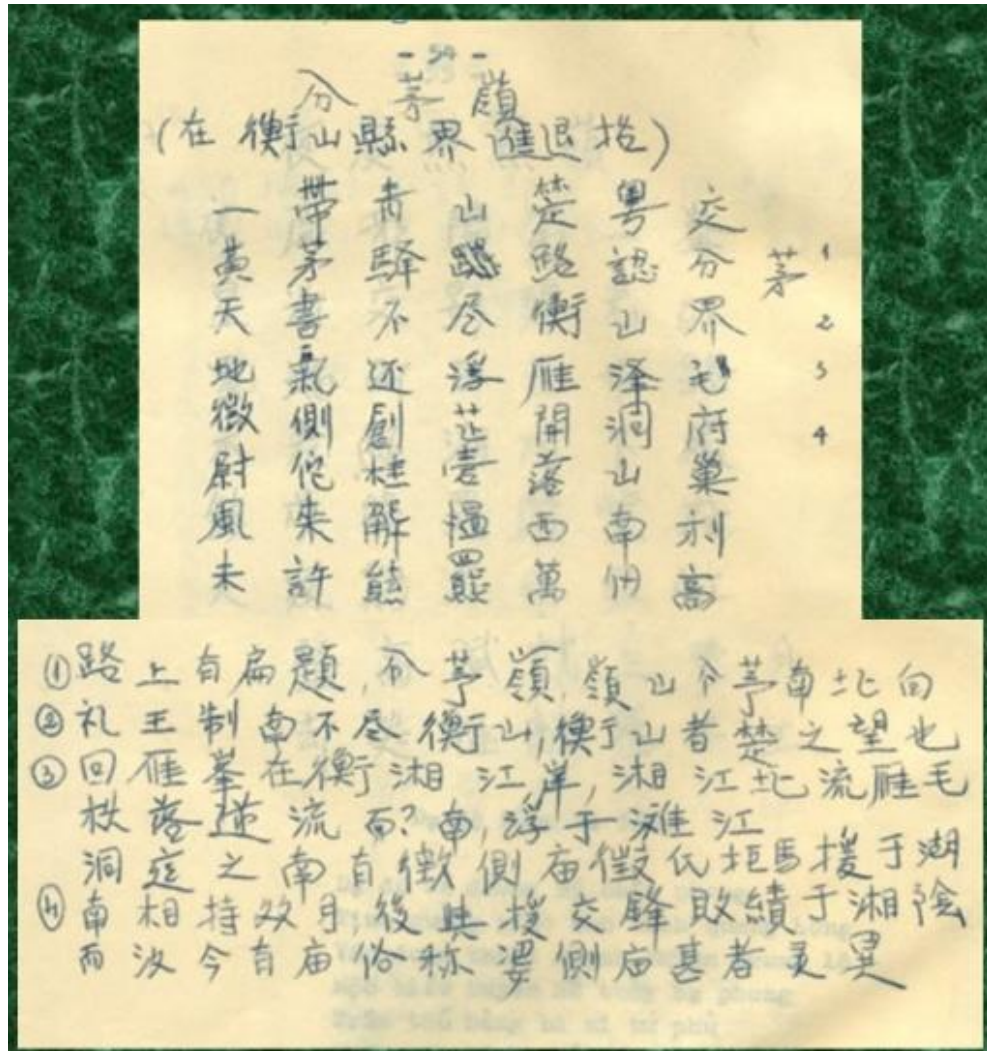 - 54 -
分茅嶺
(在衡山縣界進退拾)
1 2 3 4
茅
交分界毛府巢利高
粤認山泽洞山南
楚路衡雁開落西萬
山尽浮芷羆
青驛不还劊桂解熊
帶茅書氣側佗來許
一黄天地微尉風未
①路上有扁題,分茅嶺,嶺山分茅南北向
②礼王制南不尽衡山,衡山者楚之望也
③回雁峯在衡湘江岸,湘江北流雁毛
秋落逆流而?南,浮于滩江
洞庭之南有徵側庙徵氏拒馬援于湖
④南相持双月後与援交鋒敗績于湘陰
而没今有庙俗称婆側庙甚著灵異